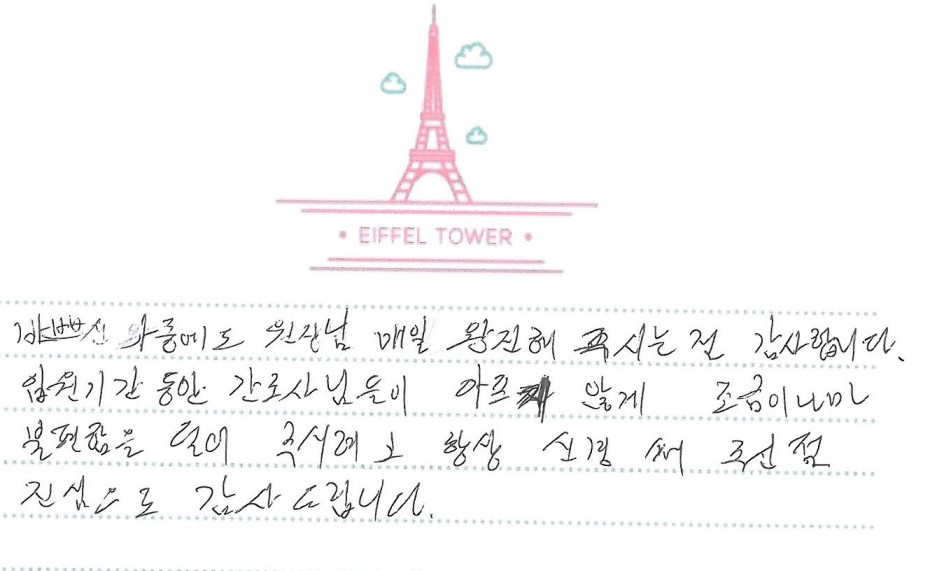 • EIFFEL TOWER •
바쁘신 와중에도 원장님 매일 왕진해 주시는 점 감사합니다.
입원기간 동안 간호사님들이 아프지 않게 조금이나마
불편함을 덜어 주시려고 항상 신경 써 주신 점
진심으로 감사드립니다.